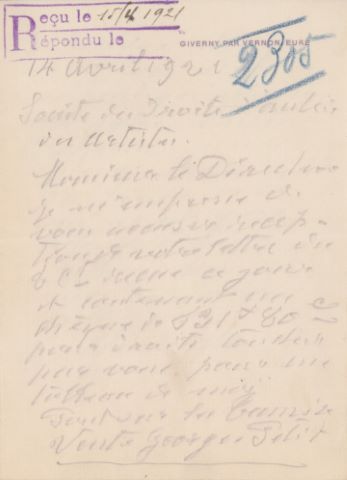 Reçu le 15/4 1921
Répondu le
GIVERNY PAR VERNON, EURE
2305
14 Avril 1921
Société du Droits d'auteur
des Artistes.
Monsieur le Directeur
Je m'empresse de
vous accuser récep-
tion de votre lettre du
Ct
et contenant un
chèque de 821 f 80 c
pour droits touchés
par vous pour un
tableau de moi
Pont sur la Tamise
Vente Georges Petit